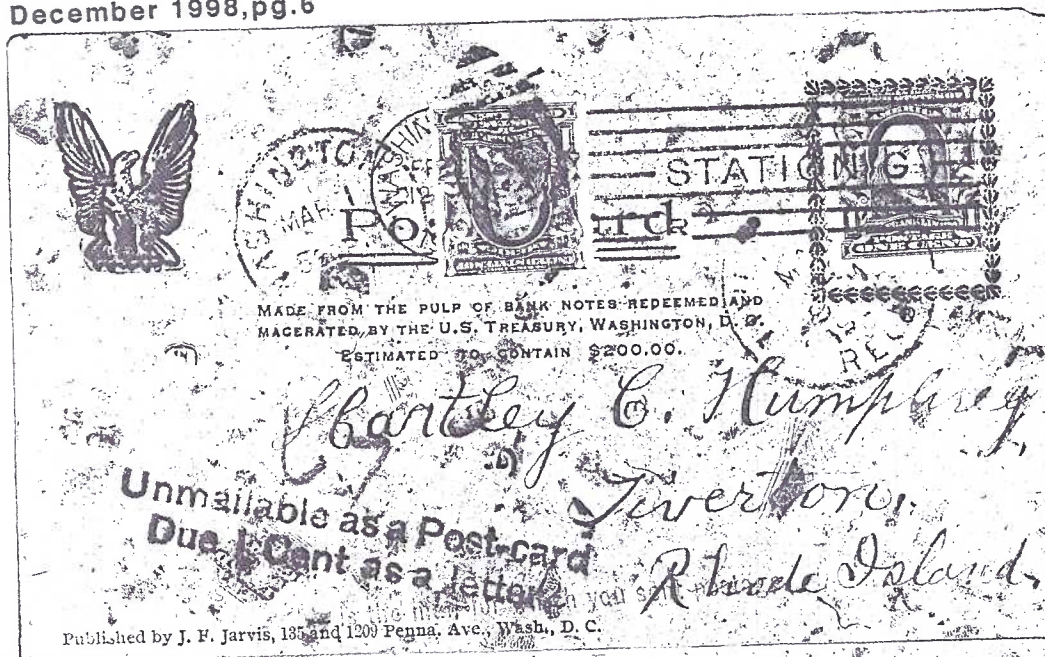 December 1998,pg.6
WASHIN
ASHINGTON
MAR 1
STATION G
Post Card
MADE FROM THE PULP OF BANK NOTES REDEEMED AND
MACERATED BY THE U.S. TREASURY, WASHINGTON, D. C.
ESTIMATED TO CONTAIN $200.00.
REC
Hartley C. Humphrey,
Tiverton,
Rhode Island.
Unmailable as a Post-card
Due 1 Cent as a letter
you
Published by J. F. Jarvis, 135 and 1209 Penna. Ave., Wash., D. C.